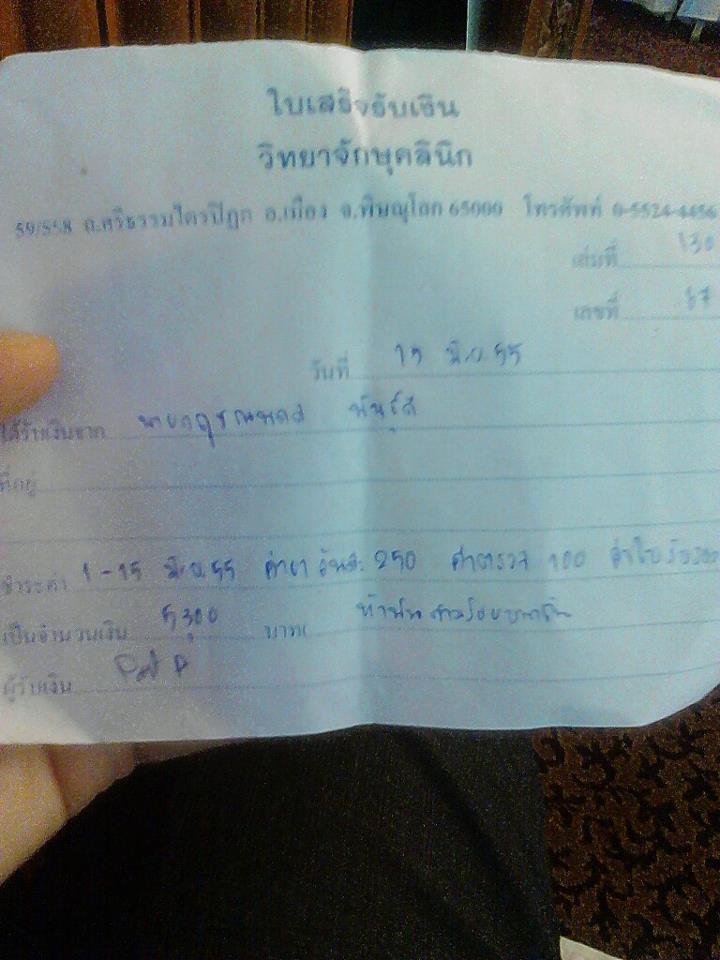 ใบเสร็จรับเงิน
วิทยาจักษุคลินิก
59/558 ถ.ศรีธรรมไตรปิฎก อ.เมือง จ.พิษณุโลก 65000 โทรศัพท์ 0-5524-4456
เล่มที่ 130
เลขที่ 67
วันที่ 15 มิ.ย. 55
ได้รับเงินจาก
ที่อยู่
ชำระค่า 1-15 มิ.ย. 55 ค่ายา วันละ 250 ค่าตรวจ 100
เป็นจำนวนเงิน 5,300 บาท ห้าพันสามร้อยบาทถ้วน
ผู้รับเงิน